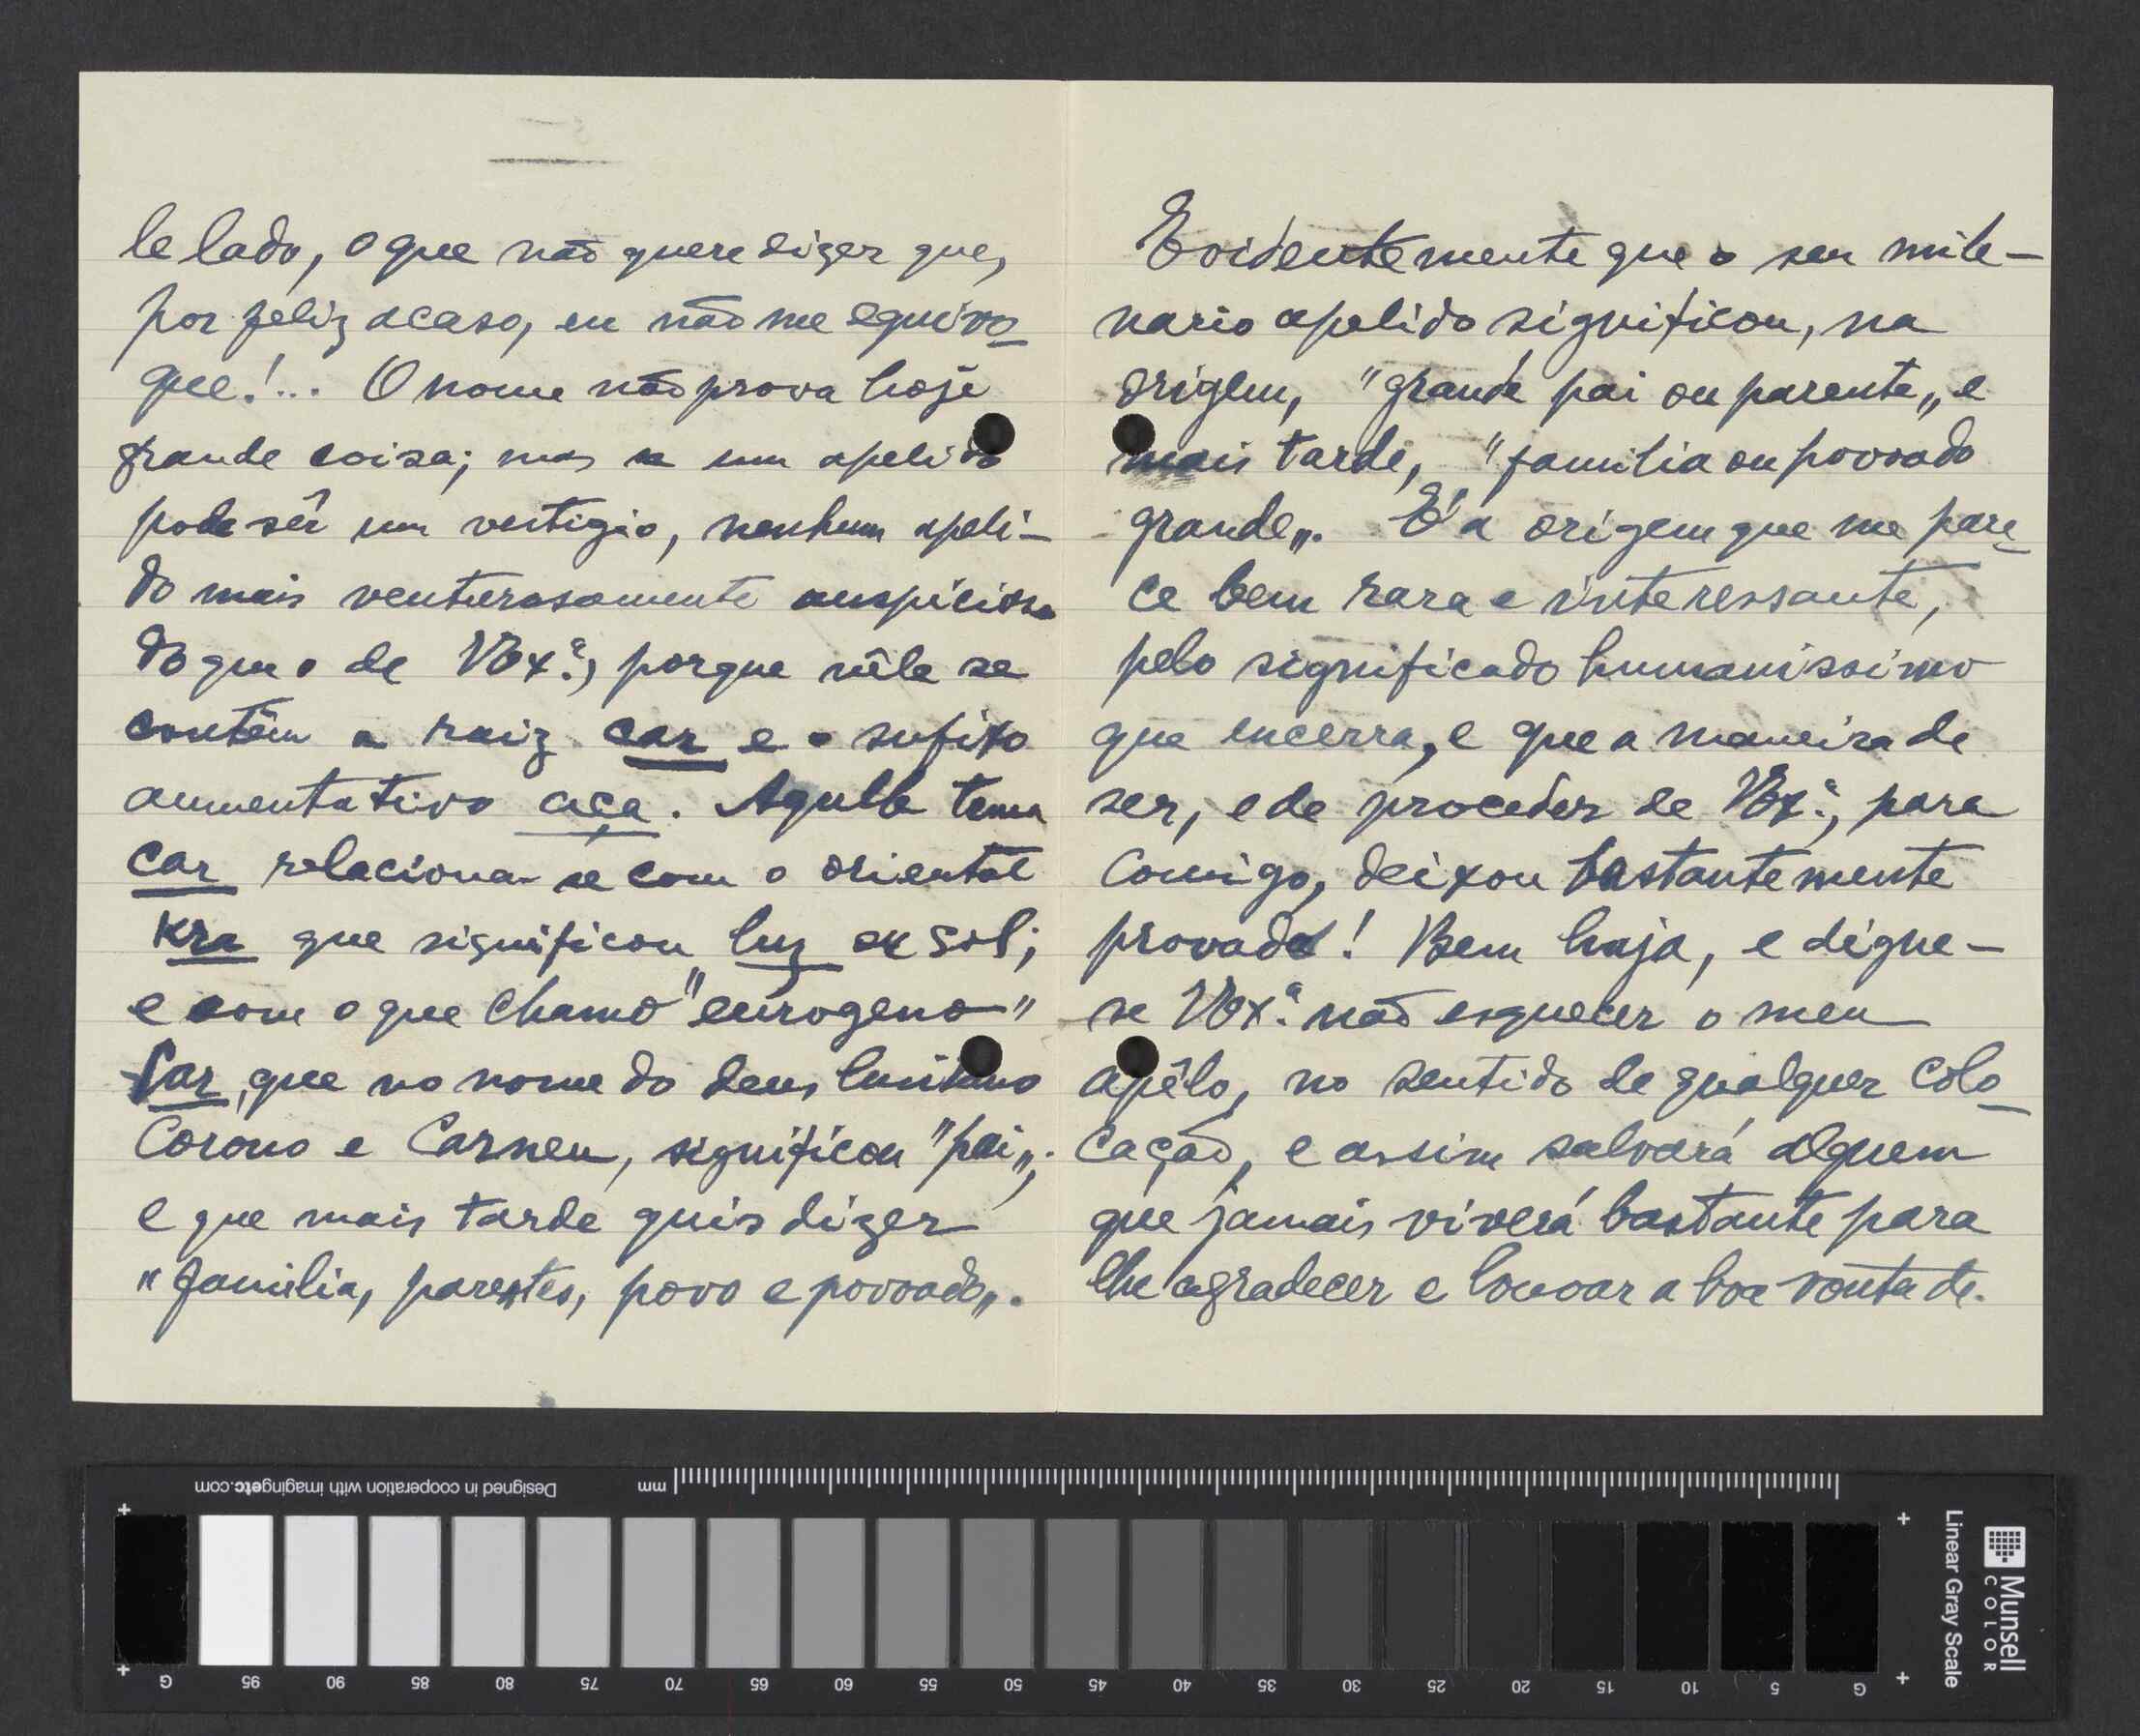 le lado, o que não quere dizer que,
por feliz acaso, eu não me equivo-
que!... O nome não prova hoje
grande coisa; mas se um apelido
pode sêr um vestigio, nenhum apeli-
do mais venturosamente auspicioso
do que o de VExª., porque nêle se
contêm a raiz car e o sufixo
aumentativo aça. Aquele tema
car relaciona-se com o oriental
kra que significou luz ou sol;
e com o que chamo "eurogeno"
Car, que no nome do deus lusitano
Corono e Carneu, significou "pai„;
e que mais tarde quis dizer
"familia, parentes, povo e povoado„.
Evidentemente que o seu mile-
nario apelido significou, na
origem, "grande pai ou parente„ e
mais tarde, "familia ou povoado
grande„. É a origem que me pare-
ce bem rara e interessante,
pelo significado humanissimo
que encerra, e que a maneira de
ser, e de proceder de VExª., para
comigo, deixou bastantemente
provado! Bem haja, e digne-
se VExª. não esquecer o meu
apêlo, no sentido de qualquer colo-
cação, e assim salvará alguem
que jamais viverá bastante para
lhe agradecer e louvar a boa vontade.
Designed in cooperation with imagingetc.com
mm
G 95 90 85 80 75 70 65 60 55 50 45 40 35 30 25 20 15 10 5 G
Linear Gray Scale
Munsell
COLOR